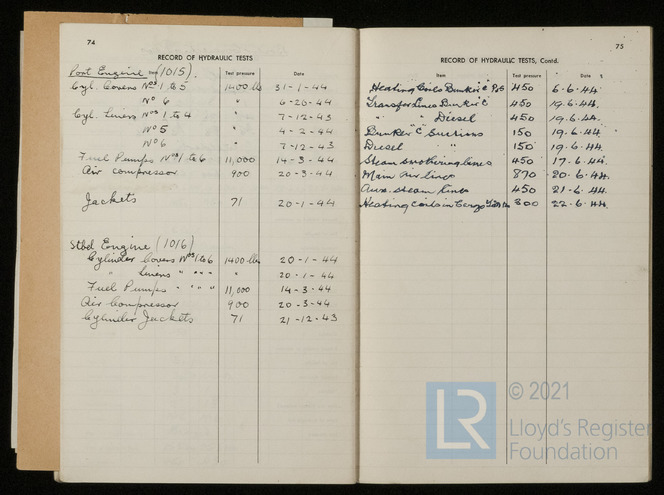 74
RECORD OF HYDRAULIC TESTS
Port Engine (1015). Item Test pressure Date
Cyl. Covers Nos 1 to 5 1400 lbs 31-1-44
No 6 " 6-20-44
Cyl. Liners Nos 1 to 4 " 7-12-43
No 5 " 4-2-44
No 6 " 7-12-43
Fuel Pumps Nos 1 to 6 11,000 14-3-44
Air compressor 900 20-3-44
Jackets 71 20-1-44
Stbd Engine (1016)
Cylinder Covers Nos 1 to 6 1400 lbs 20-1-44
" Liners " " " " 20-1-44
Fuel Pumps " " " 11,000 14-3-44
Air Compressor 900 20-3-44
Cylinder Jackets 71 21-12-43
75
RECORD OF HYDRAULIC TESTS, Contd.
Item Test pressure Date
Heating Coils Bunker "C" P&S 450 6.6.44
Transfer Lines Bunker "C" 450 19.6.44
" " Diesel 450 19.6.44.
Bunker "C" Suctions 150 19.6.44.
Diesel " 150 19.6.44
Steam smothering lines 450 17.6.44
Main air lines 870 20.6.44
Aux. steam lines 450 21-6.44
Heating Coils in Cargo 300 22.6.44.
LR
© 2021
Lloyd's Register
Foundation